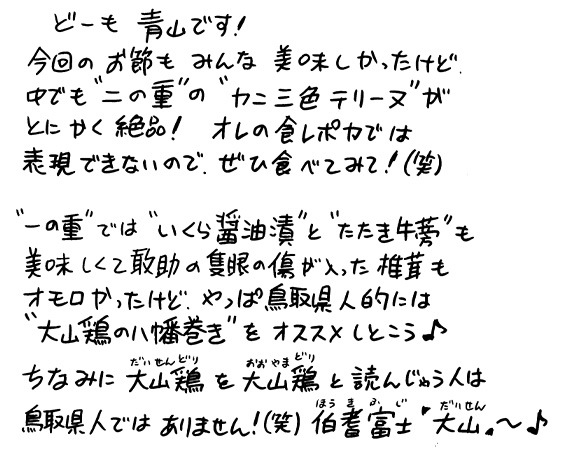 どーも 青山です!
今回の お節も みんな 美味しかったけど、
中でも"二の重"の"カニ三色テリーヌ"が
とにかく絶品! オレの食レポ力では
表現できないので、ぜひ食べてみて!(笑)
"一の重"では"いくら醤油漬"と"たたき牛蒡"も
美味しくて敢助の隻眼の傷が入った椎茸も
オモロかったけど、やっぱ鳥取県人的には
"大山鶏の八幡巻き"を オススメしとこう♪
ちなみに 大山鶏(だいせんどり) を 大山鶏(おおやまどり) と読んじゃう人は
鳥取県人ではありません!(笑) 伯耆富士(ほうきふじ)"大山(だいせん)"〜♪